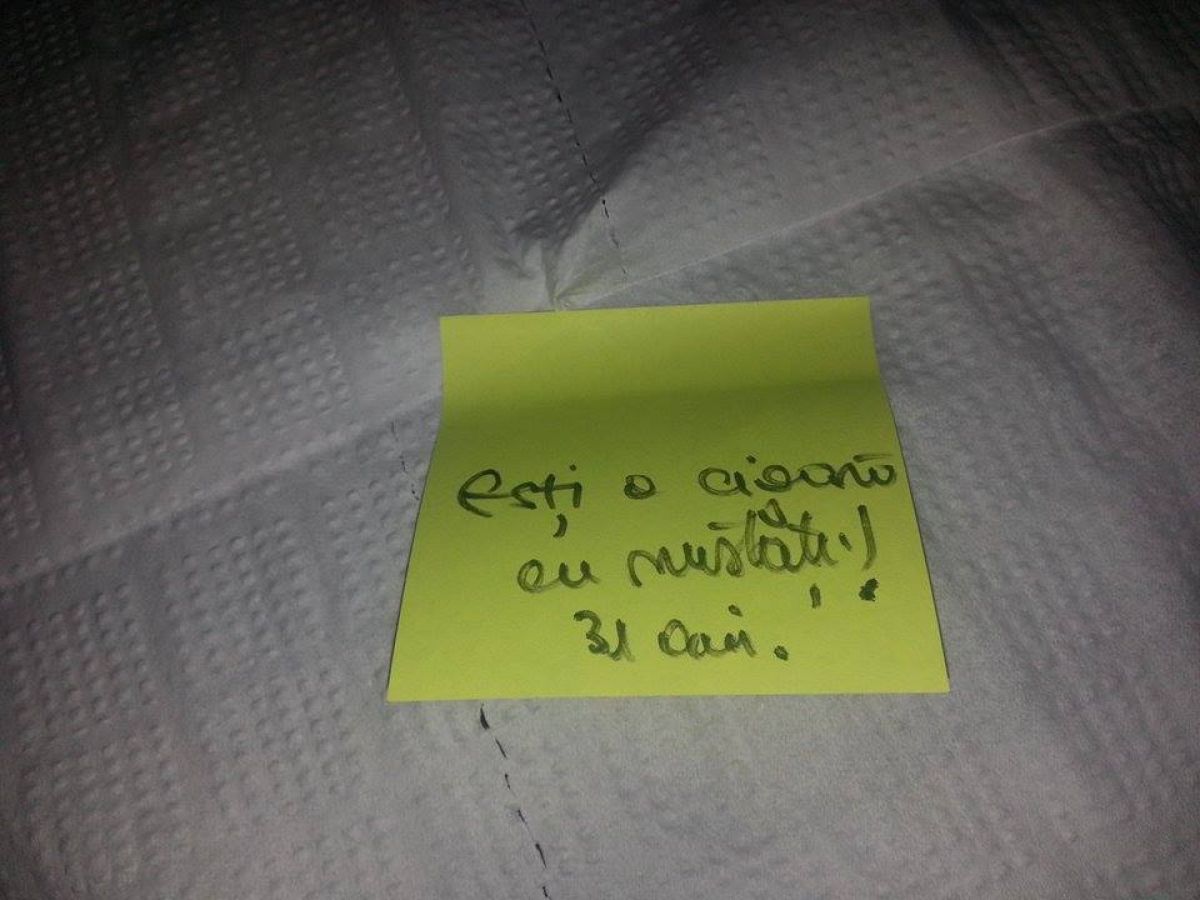 Ești o cioară
cu mustăți!
31 Dan.